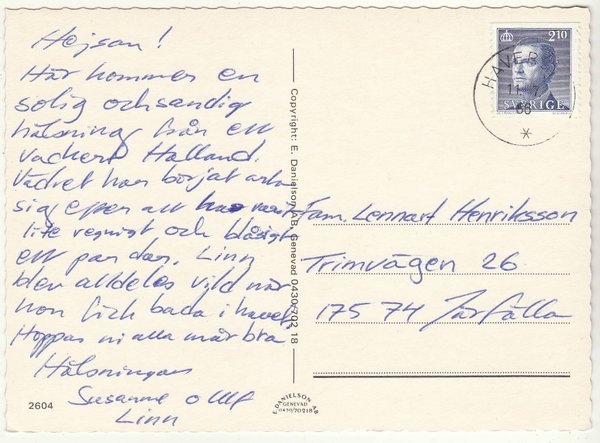 Hejsan!
Här kommer en
solig och sandig
hälsning från ett
vackert Halland.
Vädret har börjat arta
sig efter att ha varit
lite regnigt och blåsigt
ett par dar. Linn
blev alldeles vild när
hon fick bada i havet
Hoppas ni alla mår bra
Hälsningar
Susanne o Ulf
Linn
2604
Copyright: E. Danielson AB, Genevad 0430/702 18
E. DANIELSON AB
GENEVAD
0430/70218
210
SVERIGE
11 7
86
Fam. Lennart Henriksson
Trimvägen 26
175 74 Järfälla